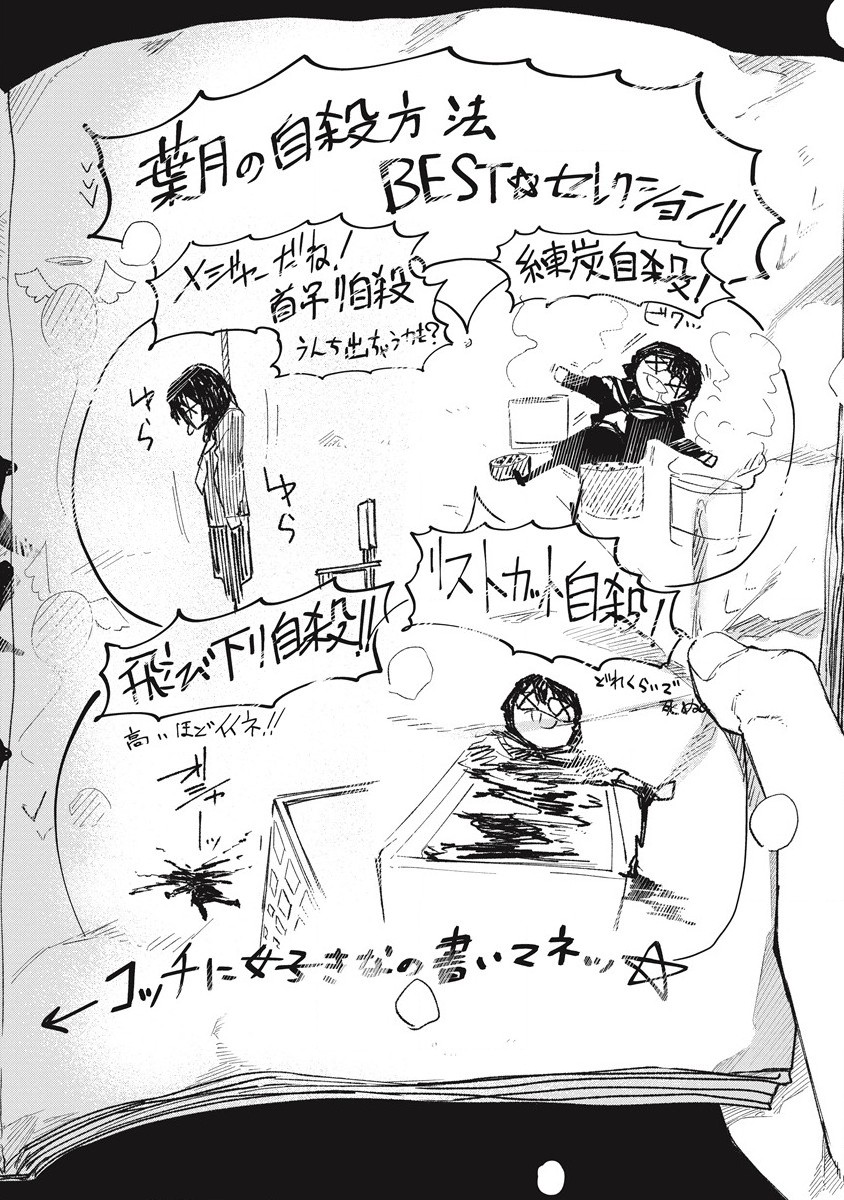 葉月の自殺方法
BEST☆セレクション!!
メジャーだね!
首字リ自殺
うんち出ちゃうかも?
練炭自殺!
ビクッ…
ゆら
ゆら
リストカット自殺!
どれくらいで
死ぬの
飛び下リ自殺!!
高いほどイイネ!!
グシャーッ
←コッチに女子きなの書いてネッ☆